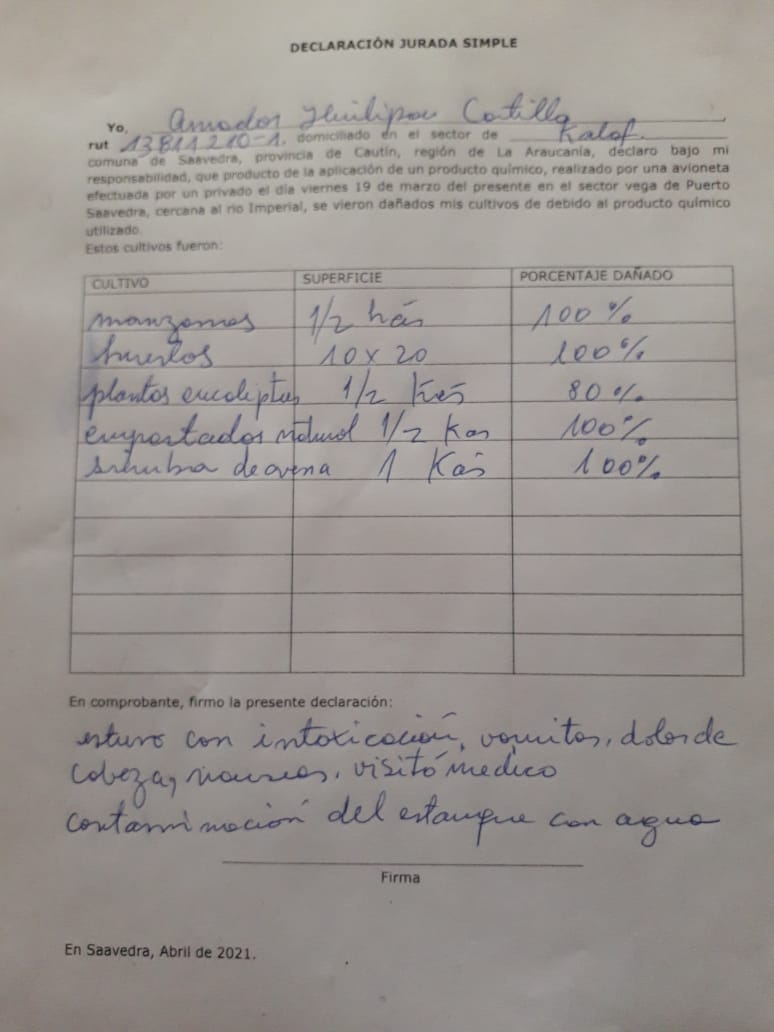 DECLARACIÓN JURADA SIMPLE
Yo, Amador Huilipan Castillo,
rut 13811210-1, domiciliado en el sector de Kalof.
comuna de Saavedra, provincia de Cautín, región de La Araucanía, declaro bajo mi
responsabilidad, que producto de la aplicación de un producto químico, realizado por una avioneta
efectuada por un privado el día viernes 19 de marzo del presente en el sector vega de Puerto
Saavedra, cercana al rio Imperial, se vieron dañados mis cultivos de debido al producto químico
utilizado.
Estos cultivos fueron:
CULTIVO SUPERFICIE PORCENTAJE DAÑADO
manzanos 1/2 hás 100%
huertos 10 x 20 100%
plantas eucaliptus 1/2 Kás 80%
empastados natural 1/2 Kas 100%
siembra de avena 1 Kás 100%
En comprobante, firmo la presente declaración:
estuvo con intoxicación, vomitos, dolor de
cabeza, nauseas, visitó medico
contaminación del estanque con agua
Firma
En Saavedra, Abril de 2021.